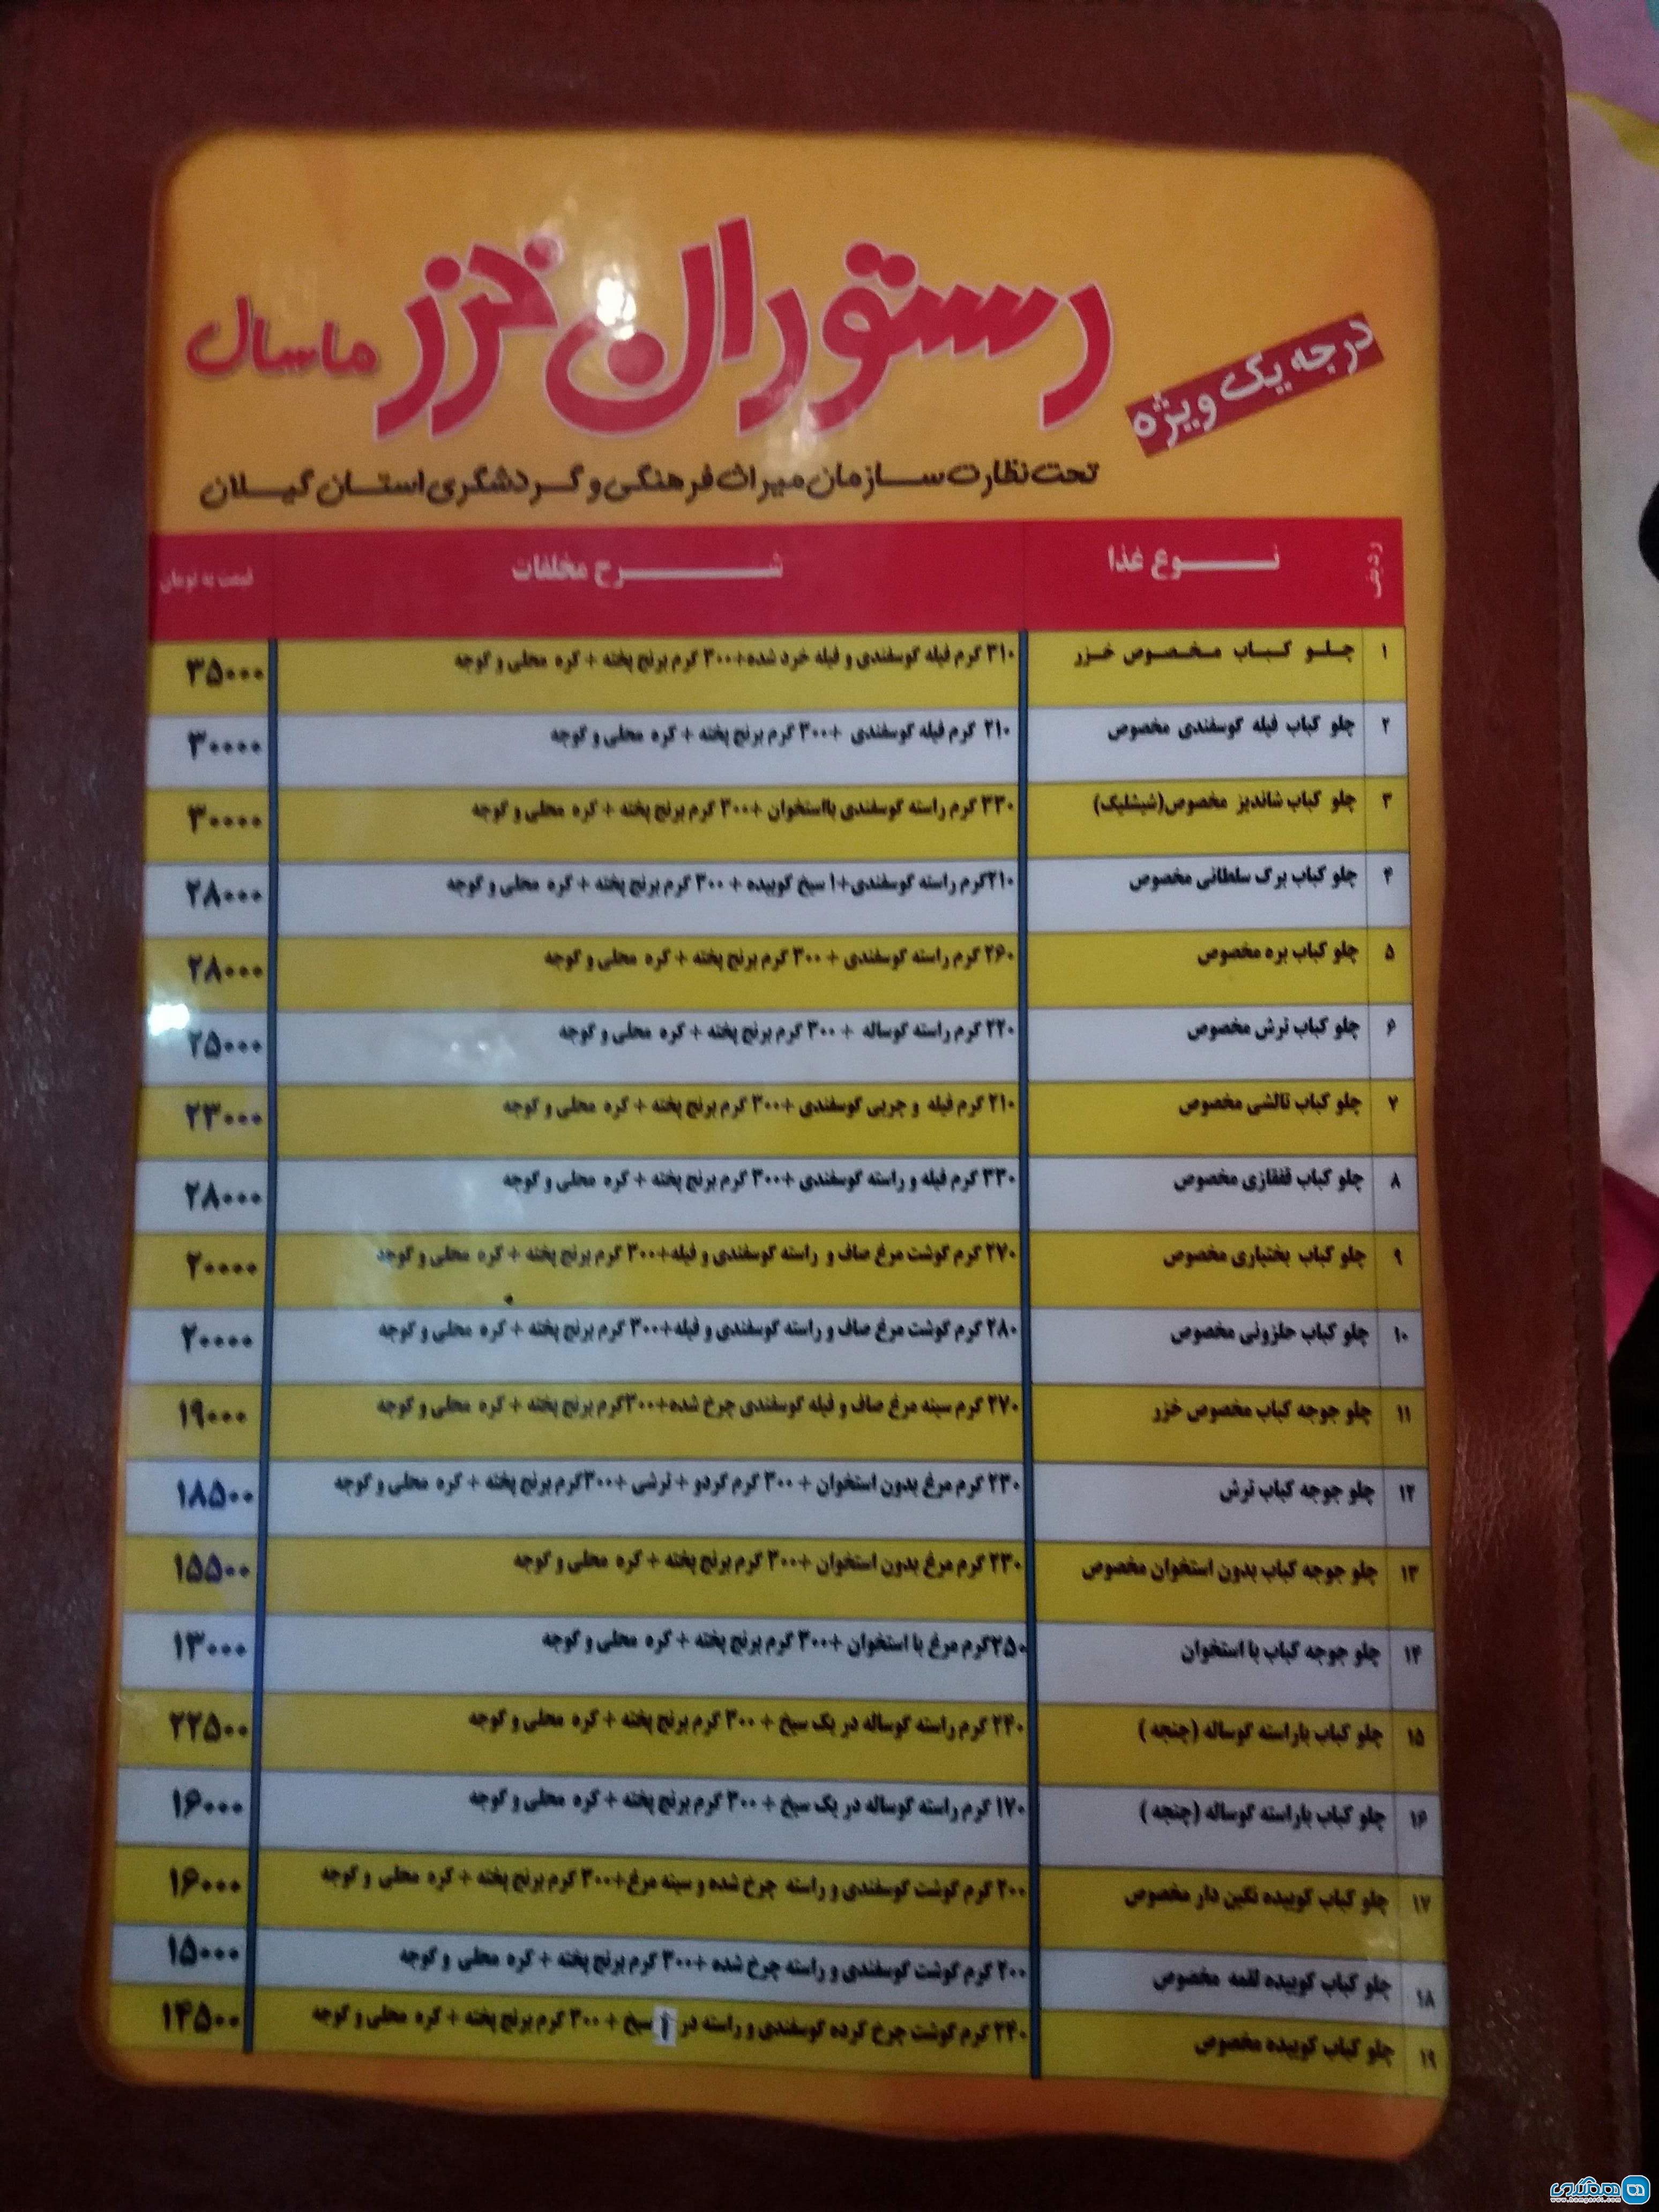 رستوران خزر ماسال
درجه یک ویژه
تحت نظارت سازمان میراث فرهنگی و گردشگری استان گیلان
ردیف نوع غذا شرح مخلفات قیمت به تومان
۱ چلو کباب مخصوص خزر ۳۱۰ گرم فیله گوسفندی و فیله خرد شده+۳۰۰ گرم برنج پخته + کره محلی و گوجه ۳۵۰۰۰
۲ چلو کباب فیله گوسفندی مخصوص ۲۱۰ گرم فیله گوسفندی +۳۰۰ گرم برنج پخته + کره محلی و گوجه ۳۰۰۰۰
۳ چلو کباب شاندیز مخصوص(شیشلیک) ۳۳۰ گرم راسته گوسفندی بااستخوان +۳۰۰ گرم برنج پخته + کره محلی و گوجه ۳۰۰۰۰
۴ چلو کباب برگ سلطانی مخصوص ۲۱۰گرم راسته گوسفندی+۱ سیخ کوبیده + ۳۰۰ گرم برنج پخته + کره محلی و گوجه ۲۸۰۰۰
۵ چلو کباب بره مخصوص ۲۶۰ گرم راسته گوسفندی + ۳۰۰ گرم برنج پخته + کره محلی و گوجه ۲۸۰۰۰
۶ چلو کباب ترش مخصوص ۲۲۰ گرم راسته گوساله + ۳۰۰ گرم برنج پخته + کره محلی و گوجه ۲۵۰۰۰
۷ چلو کباب تالشی مخصوص ۲۱۰ گرم فیله و چربی گوسفندی +۳۰۰ گرم برنج پخته + کره محلی و گوجه ۲۳۰۰۰
۸ چلو کباب قفقازی مخصوص ۳۳۰ گرم فیله و راسته گوسفندی +۳۰۰ گرم برنج پخته + کره محلی و گوجه ۲۸۰۰۰
۹ چلو کباب بختیاری مخصوص ۲۷۰ گرم گوشت مرغ صاف و راسته گوسفندی و فیله+۳۰۰ گرم برنج پخته + کره محلی و گوجه ۲۰۰۰۰
۱۰ چلو کباب حلزونی مخصوص ۲۸۰ گرم گوشت مرغ صاف و راسته گوسفندی و فیله+۳۰۰ گرم برنج پخته + کره محلی و گوجه ۲۰۰۰۰
۱۱ چلو جوجه کباب مخصوص خزر ۲۷۰ گرم سینه مرغ صاف و فیله گوسفندی چرخ شده+۳۰۰گرم برنج پخته + کره محلی و گوجه ۱۹۰۰۰
۱۲ چلو جوجه کباب ترش ۲۳۰ گرم مرغ بدون استخوان + ۳۰۰ گرم گردو + ترشی +۳۰۰گرم برنج پخته + کره محلی و گوجه ۱۸۵۰۰
۱۳ چلو جوجه کباب بدون استخوان مخصوص ۲۳۰ گرم مرغ بدون استخوان +۳۰۰ گرم برنج پخته + کره محلی و گوجه ۱۵۵۰۰
۱۴ چلو جوجه کباب با استخوان ۲۵۰گرم مرغ با استخوان +۳۰۰ گرم برنج پخته + کره محلی و گوجه ۱۳۰۰۰
۱۵ چلو کباب باراسته گوساله (چنجه ) ۲۴۰ گرم راسته گوساله در یک سیخ + ۳۰۰ گرم برنج پخته + کره محلی و گوجه ۲۲۵۰۰
۱۶ چلو کباب باراسته گوساله (چنجه ) ۱۷۰ گرم راسته گوساله در یک سیخ + ۳۰۰ گرم برنج پخته + کره محلی و گوجه ۱۶۰۰۰
۱۷ چلو کباب کوبیده نگین دار مخصوص ۲۰۰ گرم گوشت گوسفندی و راسته چرخ شده و سینه مرغ+۳۰۰ گرم برنج پخته + کره محلی و گوجه ۱۶۰۰۰
۱۸ چلو کباب کوبیده لقمه مخصوص ۲۰۰ گرم گوشت گوسفندی و راسته چرخ شده +۳۰۰ گرم برنج پخته + کره محلی و گوجه ۱۵۰۰۰
۱۹ چلو کباب کوبیده مخصوص ۲۴۰ گرم گوشت چرخ کرده گوسفندی و راسته در سیخ + ۳۰۰ گرم برنج پخته + کره محلی و گوجه ۱۴۵۰۰
همگردی
www.hamgardi.com